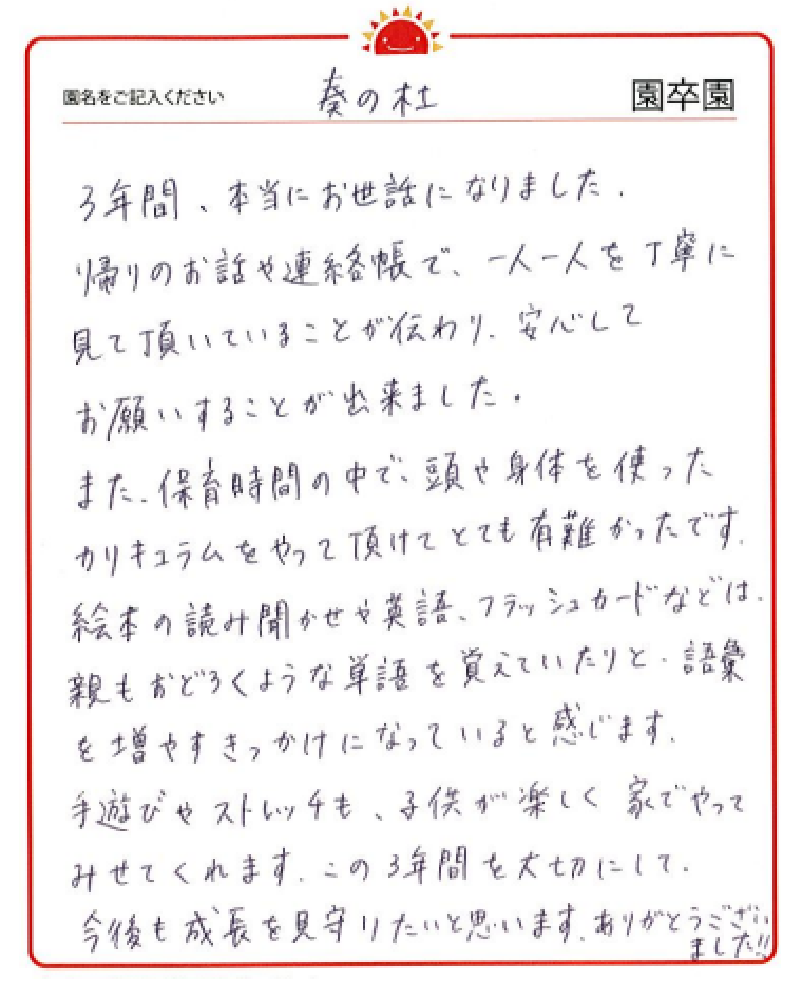 園名をご記入ください 奏の杜 園卒園
3年間、本当にお世話になりました。
帰りのお話や連絡帳で、一人一人を丁寧に
見て頂いていることが伝わり、安心して
お願いすることが出来ました。
また、保育時間の中で、頭や身体を使った
カリキュラムをやって頂けてとても有難かったです。
絵本の読み聞かせや英語、フラッシュカードなどは、
親もおどろくような単語を覚えていたりと、語彙
を増やすきっかけになっていると感じます。
手遊びやストレッチも、子供が楽しく家でやって
みせてくれます。この3年間を大切にして、
今後も成長を見守りたいと思います。ありがとうござい
ました!!